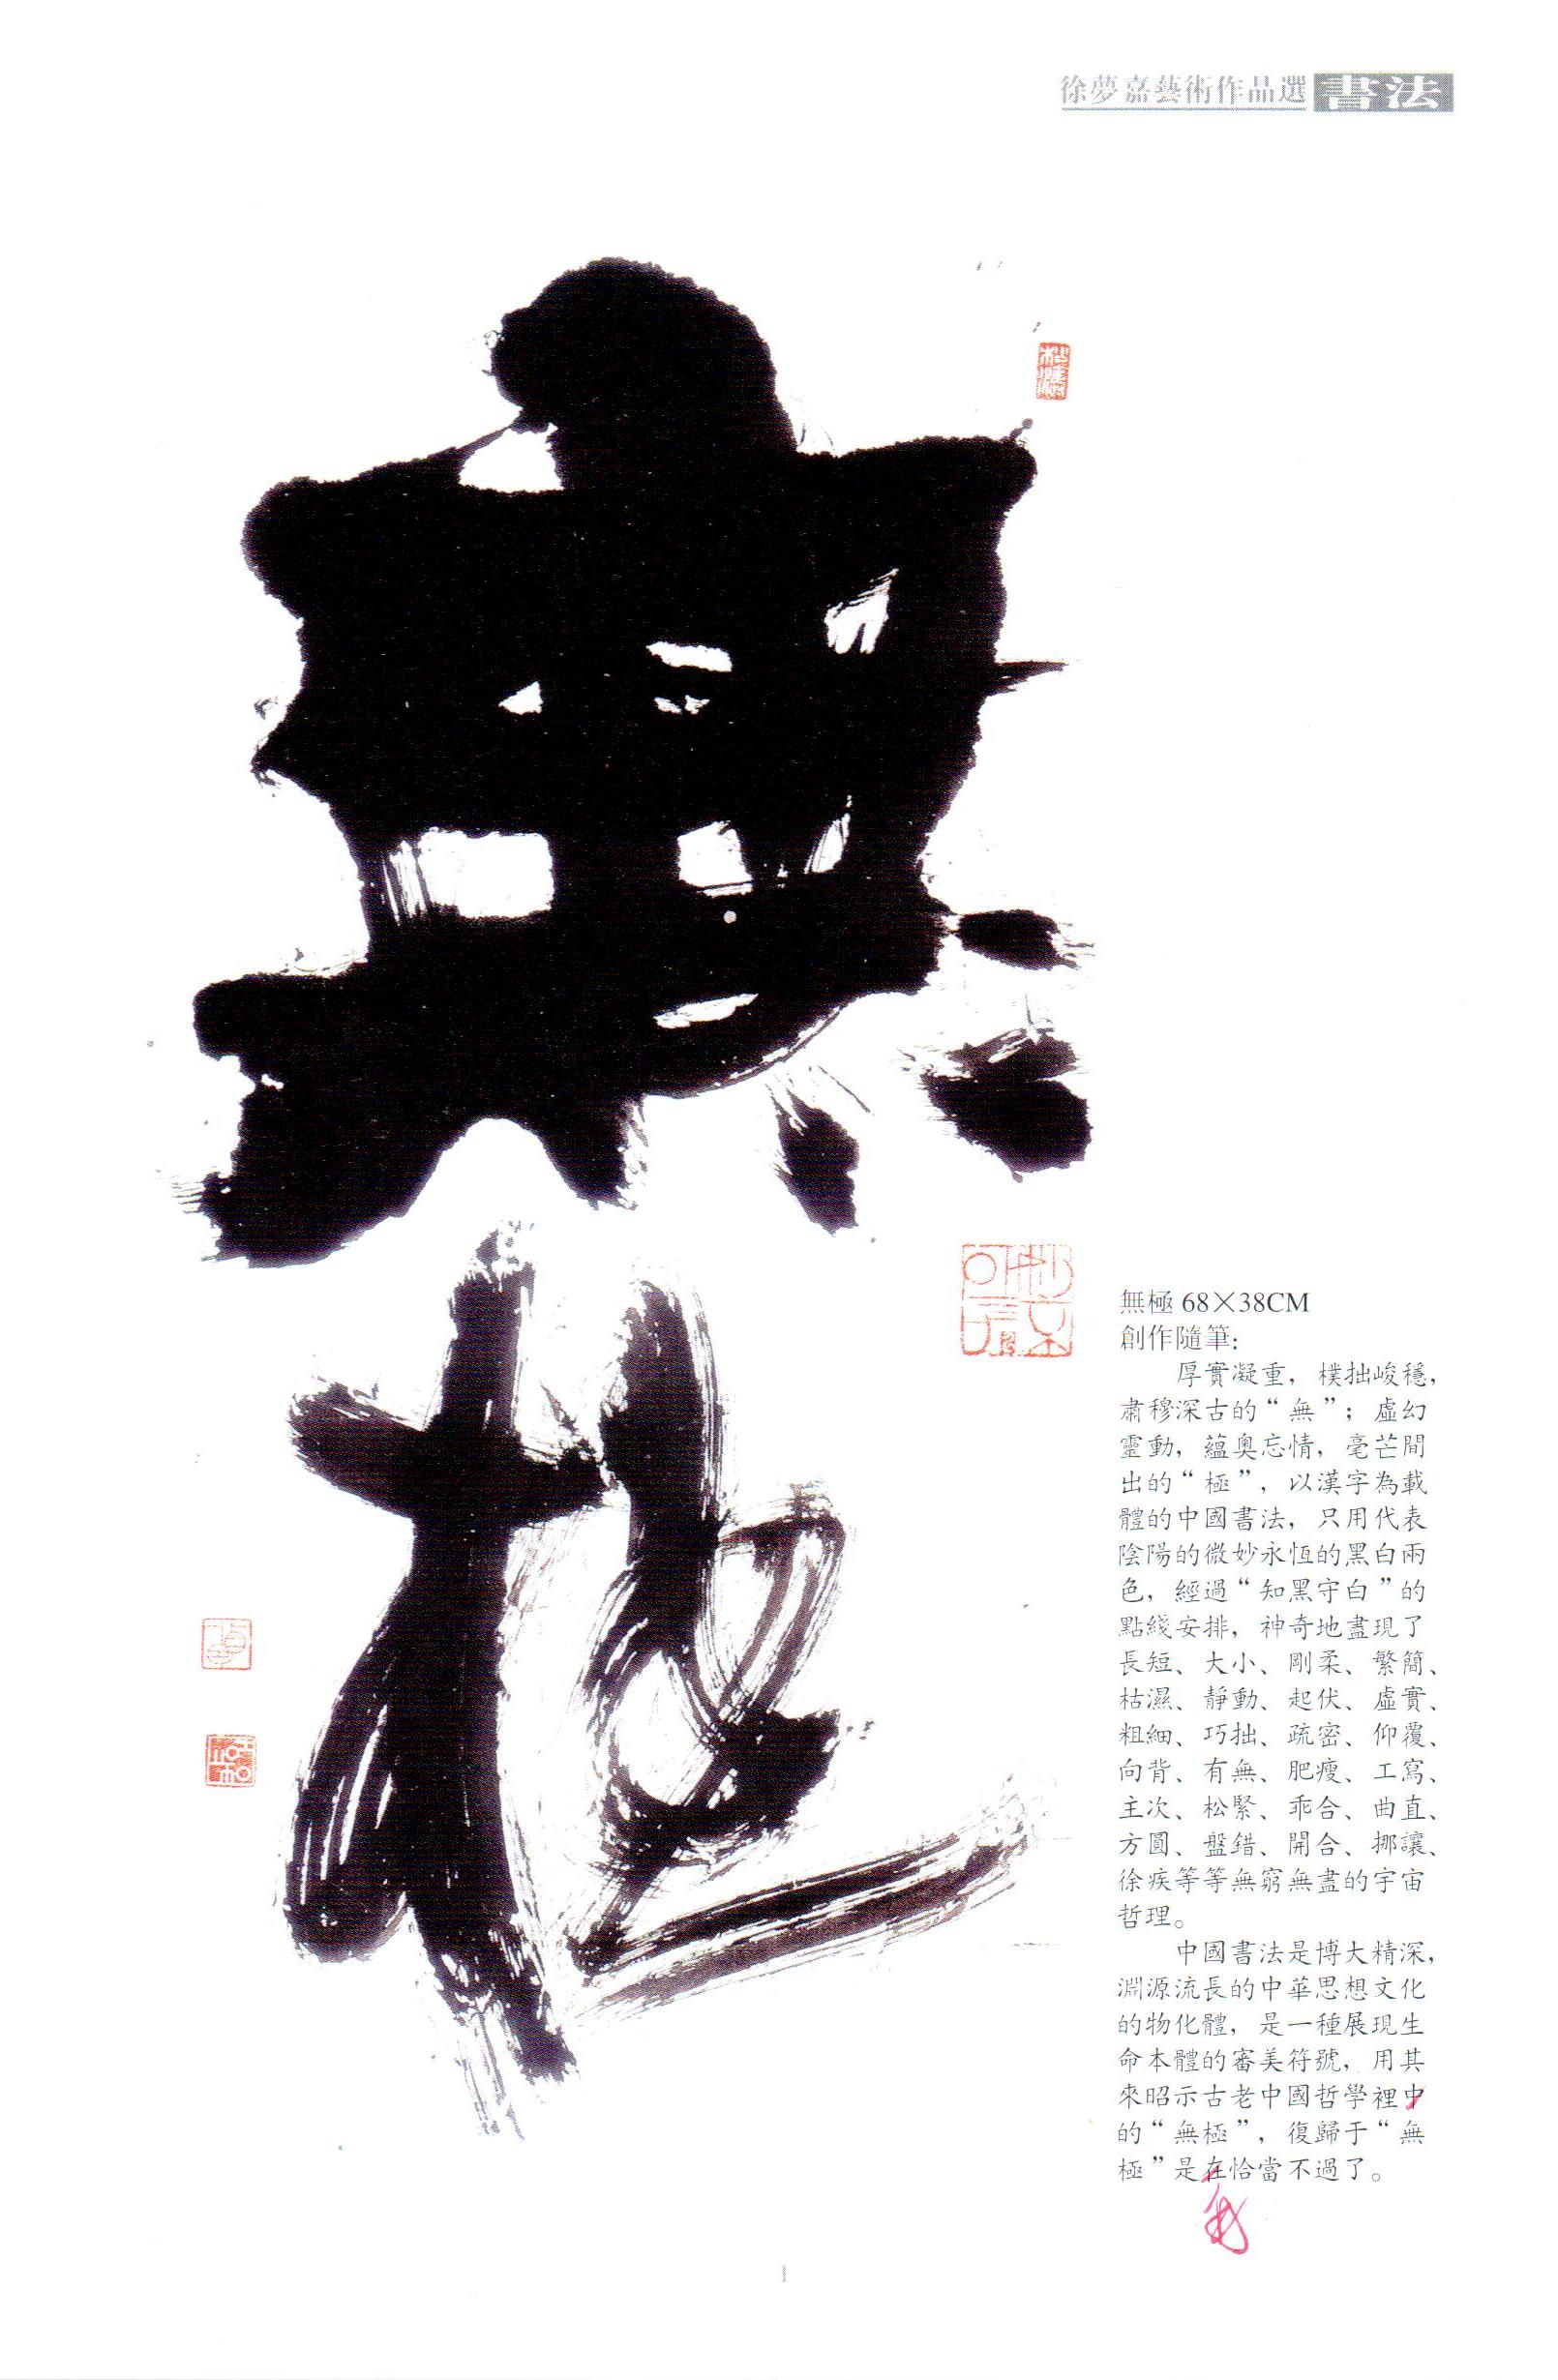 徐夢嘉藝術作品選 書法
無極
無極 68×38CM
創作隨筆:
厚實凝重，樸拙峻穩，
肅穆深古的“無”；虛幻
靈動，蘊奧忘情，毫芒間
出的“極”，以漢字為載
體的中國書法，只用代表
陰陽的微妙永恆的黑白兩
色，經過“知黑守白”的
點綫安排，神奇地盡現了
長短、大小、剛柔、繁簡、
枯濕、靜動、起伏、虛實、
粗細、巧拙、疏密、仰覆、
向背、有無、肥瘦、工寫、
主次、松緊、乖合、曲直、
方圓、盤錯、開合、挪讓、
徐疾等等無窮無盡的宇宙
哲理。
中國書法是博大精深，
淵源流長的中華思想文化
的物化體，是一種展現生
命本體的審美符號，用其
來昭示古老中國哲學裡中
的“無極”，復歸于“無
極”是在恰當不過了。
1